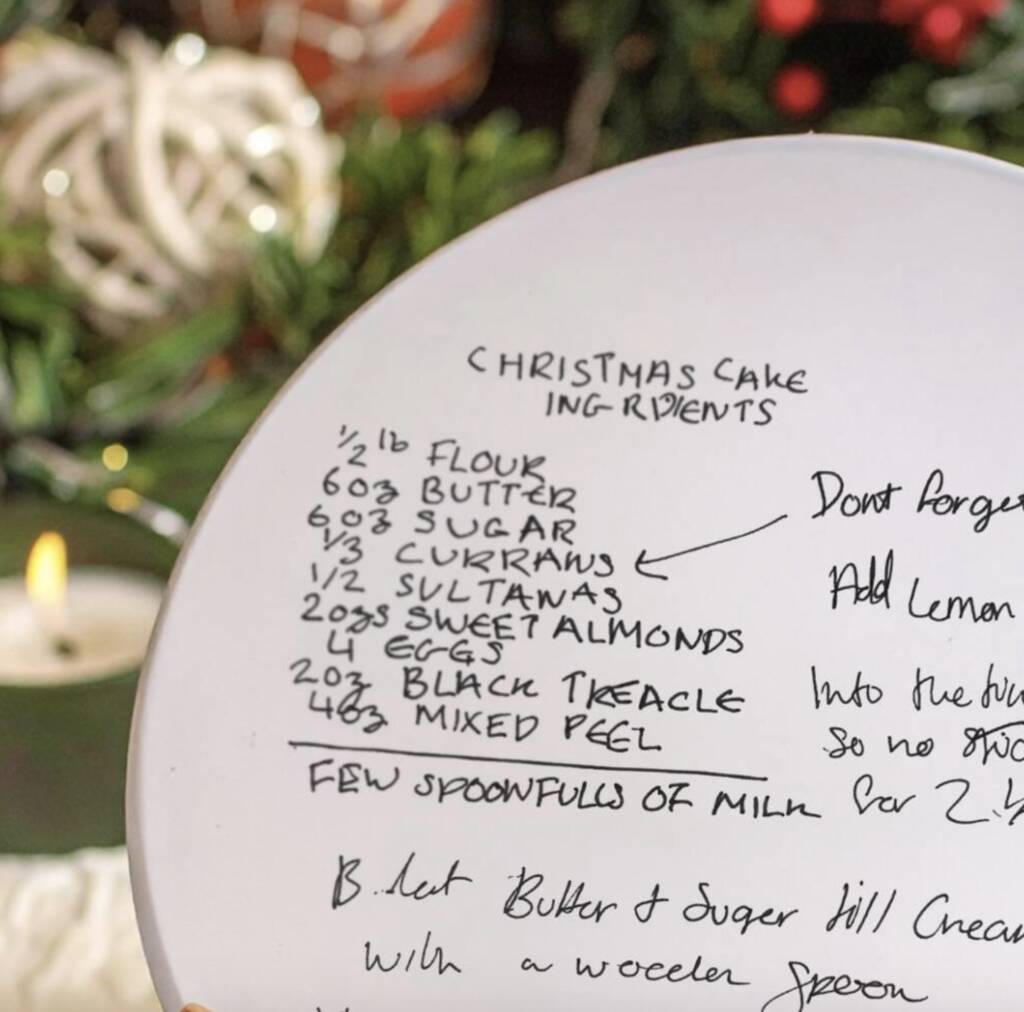 CHRISTMAS CAKE
INGRDIENTS
1/2 lb FLOUR
6oz BUTTER
6oz SUGAR
1/3 CURRANS
Dont forget
1/2 SULTANAS
Add Lemon
2ozs SWEET ALMONDS
4 EGGS
2oz BLACK TREACLE
Into the
4oz MIXED PEEL
So no
FEW SPOONFULLS OF MILK for 2
Butter & Suger till Cream
with a wooden Spoon